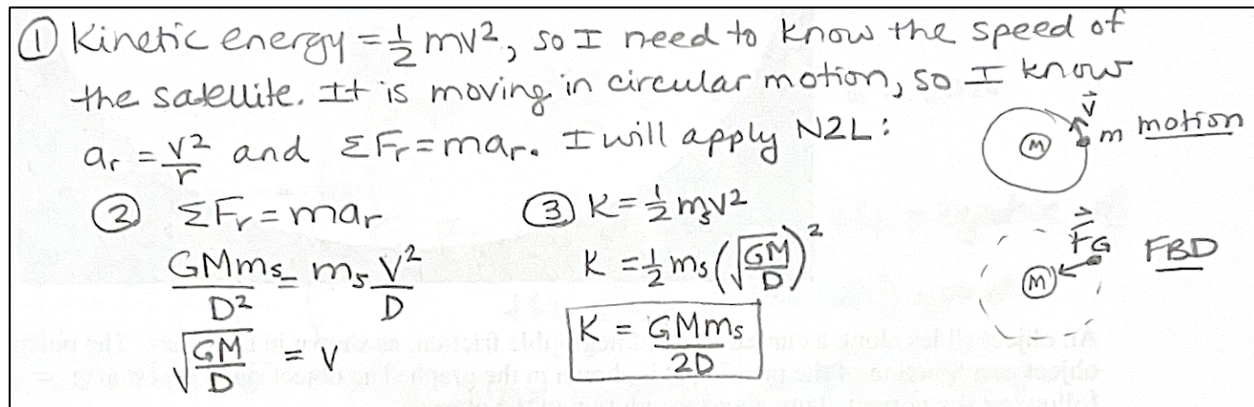 ① Kinetic energy = ½ mv², so I need to know the speed of
the satellite. It is moving in circular motion, so I know
aᵣ = v²/r and ΣFᵣ = maᵣ. I will apply N2L:
v⃗
M
m motion
② ΣFᵣ = maᵣ
GMmₛ/D² = mₛ v²/D
√(GM/D) = v
③ K = ½ mₛv²
K = ½ mₛ (√(GM/D))²
K = GMmₛ/2D
F⃗G
M
FBD